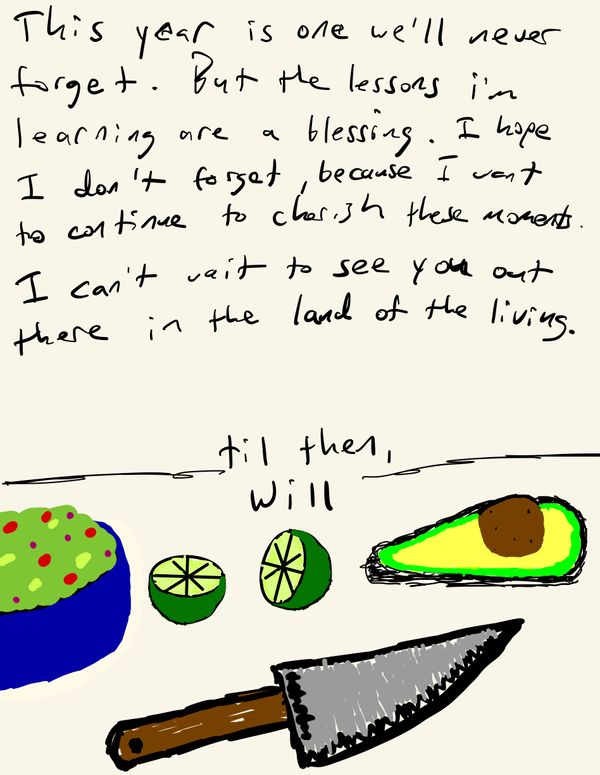 This year is one we'll never
forget. But the lessons i'm
learning are a blessing. I hope
I don't forget, because I want
to continue to cherish these moments.
I can't wait to see you out
there in the land of the living.
til then,
Will